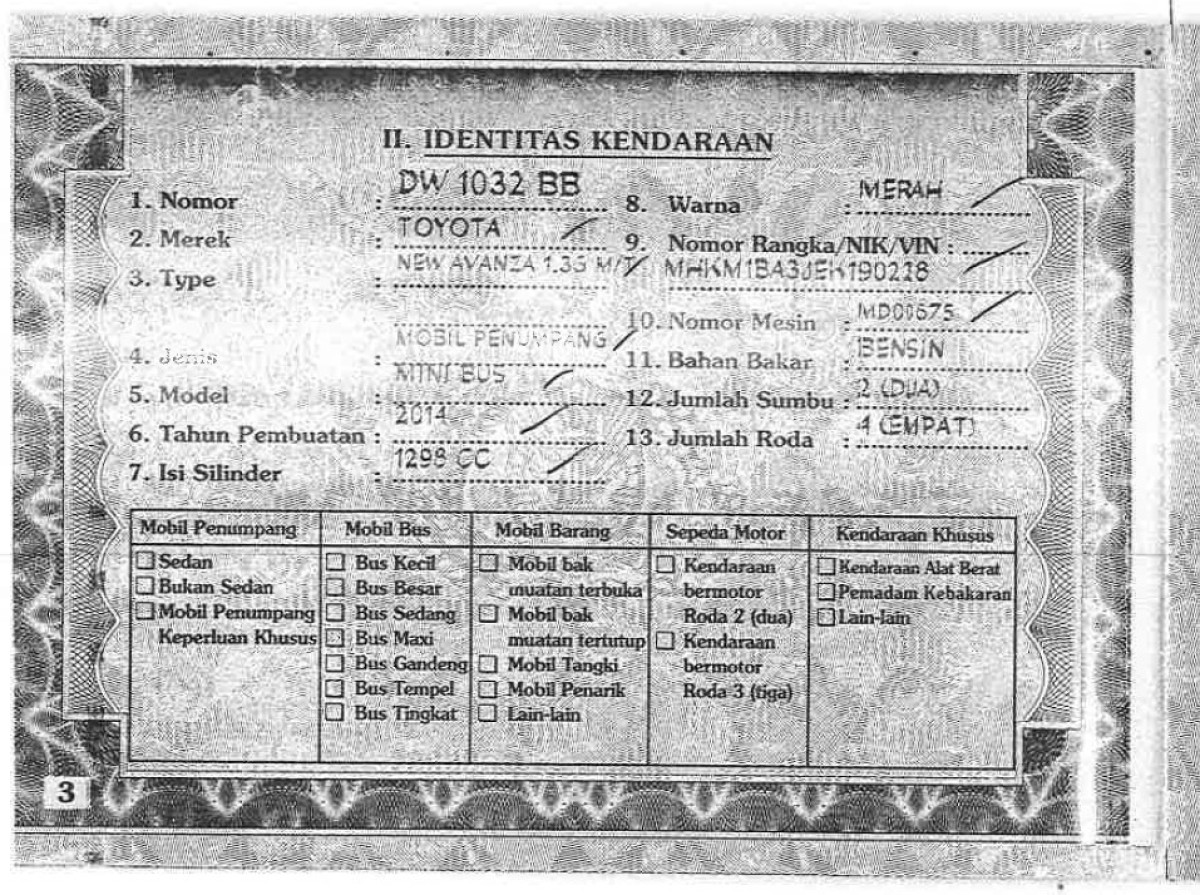 II. IDENTITAS KENDARAAN
1. Nomor : DW 1032 BB
2. Merek : TOYOTA
3. Type : NEW AVANZA 1.3G M/T
4. Jenis : MOBIL PENUMPANG
5. Model : MINI BUS
6. Tahun Pembuatan : 2014
7. Isi Silinder : 1298 CC
8. Warna : MERAH
9. Nomor Rangka/NIK/VIN :
MHKM1BA3JEK190228
10. Nomor Mesin : MD00675
11. Bahan Bakar : BENSIN
12. Jumlah Sumbu : 2 (DUA)
13. Jumlah Roda : 4 (EMPAT)
Mobil Penumpang
Sedan
Bukan Sedan
Mobil Penumpang
Keperluan Khusus
Mobil Bus
Bus Kecil
Bus Besar
Bus Sedang
Bus Maxi
Bus Gandeng
Bus Tempel
Bus Tingkat
Mobil Barang
Mobil bak
muatan terbuka
Mobil bak
muatan tertutup
Mobil Tangki
Mobil Penarik
Lain-lain
Sepeda Motor
Kendaraan
bermotor
Roda 2 (dua)
Kendaraan
bermotor
Roda 3 (tiga)
Kendaraan Khusus
Kendaraan Alat Berat
Pemadam Kebakaran
Lain-lain
3